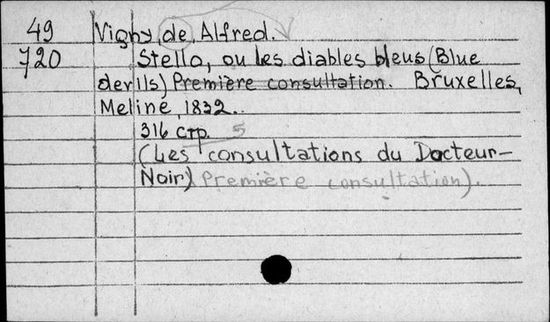 49 Vigny de Alfred.
720 Stello, ou les diables bleus (Blue
devils) Première consultation. Bruxelles,
Meline, 1832.
316 стр. 5
(Les consultations du Docteur-
Noir) Première consultation).